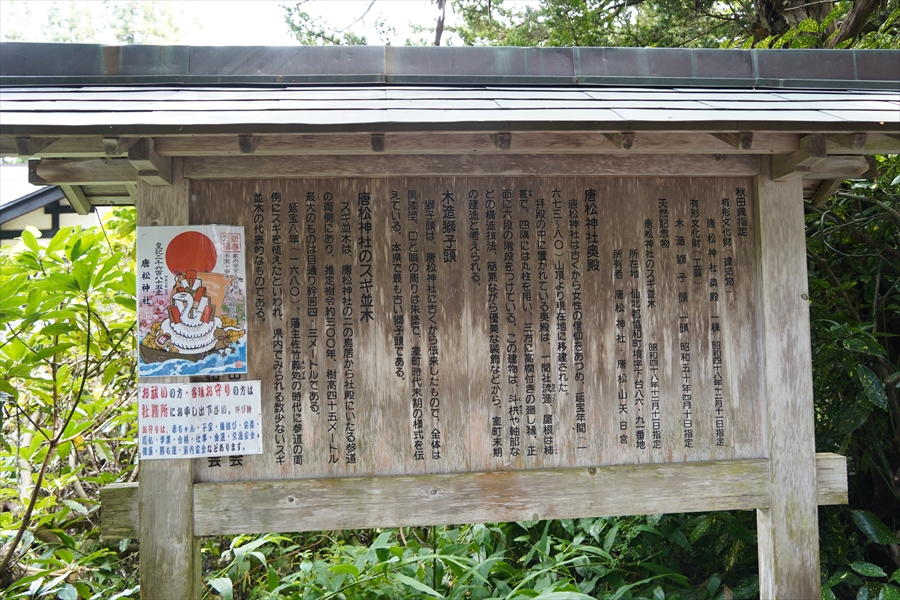 秋田県指定
有形文化財(建造物)
唐松神社奥殿 一棟 昭和四十八年十二月十一日指定
有形文化財(工芸)
木造獅子頭 一頭 昭和五十年四月十日指定
天然記念物
唐松神社のスギ並木 昭和四十八年十二月十一日指定
所在地 仙北郡協和町境字下台八六・九一番地
所有者 唐松神社 唐松山天日宮
唐松神社奥殿
唐松神社は古くから女性の信仰をあつめ、延宝年間(一
六七三~八〇)山頂より現在地に移建された。
拝殿の中に置かれている奥殿は、一間社流造、屋根は柿
葺で、四隅には丸柱を用い、三方に高欄付きの廻し縁、正
面に六段の階段をつけている。この建物は、斗栱や軸部な
どの構造技法、簡素ながら優美な装飾などから、室町末期
の建造と考えられる。
木造獅子頭
獅子頭は、唐松神社に古くから伝来したもので、全体は
黒漆塗、口と眼の周りは朱塗で、室町時代末期の様式を伝
えている。本県で最も古い獅子頭である。
唐松神社のスギ並木
スギ並木は、唐松神社の二の鳥居から社殿にいたる参道
の両側にあり、推定樹令約三〇〇年、樹高四十五メートル
最大のものは目通り幹囲四・三メートルである。
延宝八年(一六八〇)、藩主佐竹義処の時代に参道の両
側にスギを植えたといわれ、県内でみられる数少ないスギ
並木の代表的なものである。
新春
万福
皇紀二千六百八十五年
唐松神社
お祓いの方・各種お守りの方は
社務所にお申し出下さい。
お守りは、赤ちゃん・子宝・縁結び・安産・
厄払・学業・合格・仕事・金運・交通安全・
健康・勝守・家内安全などあります。